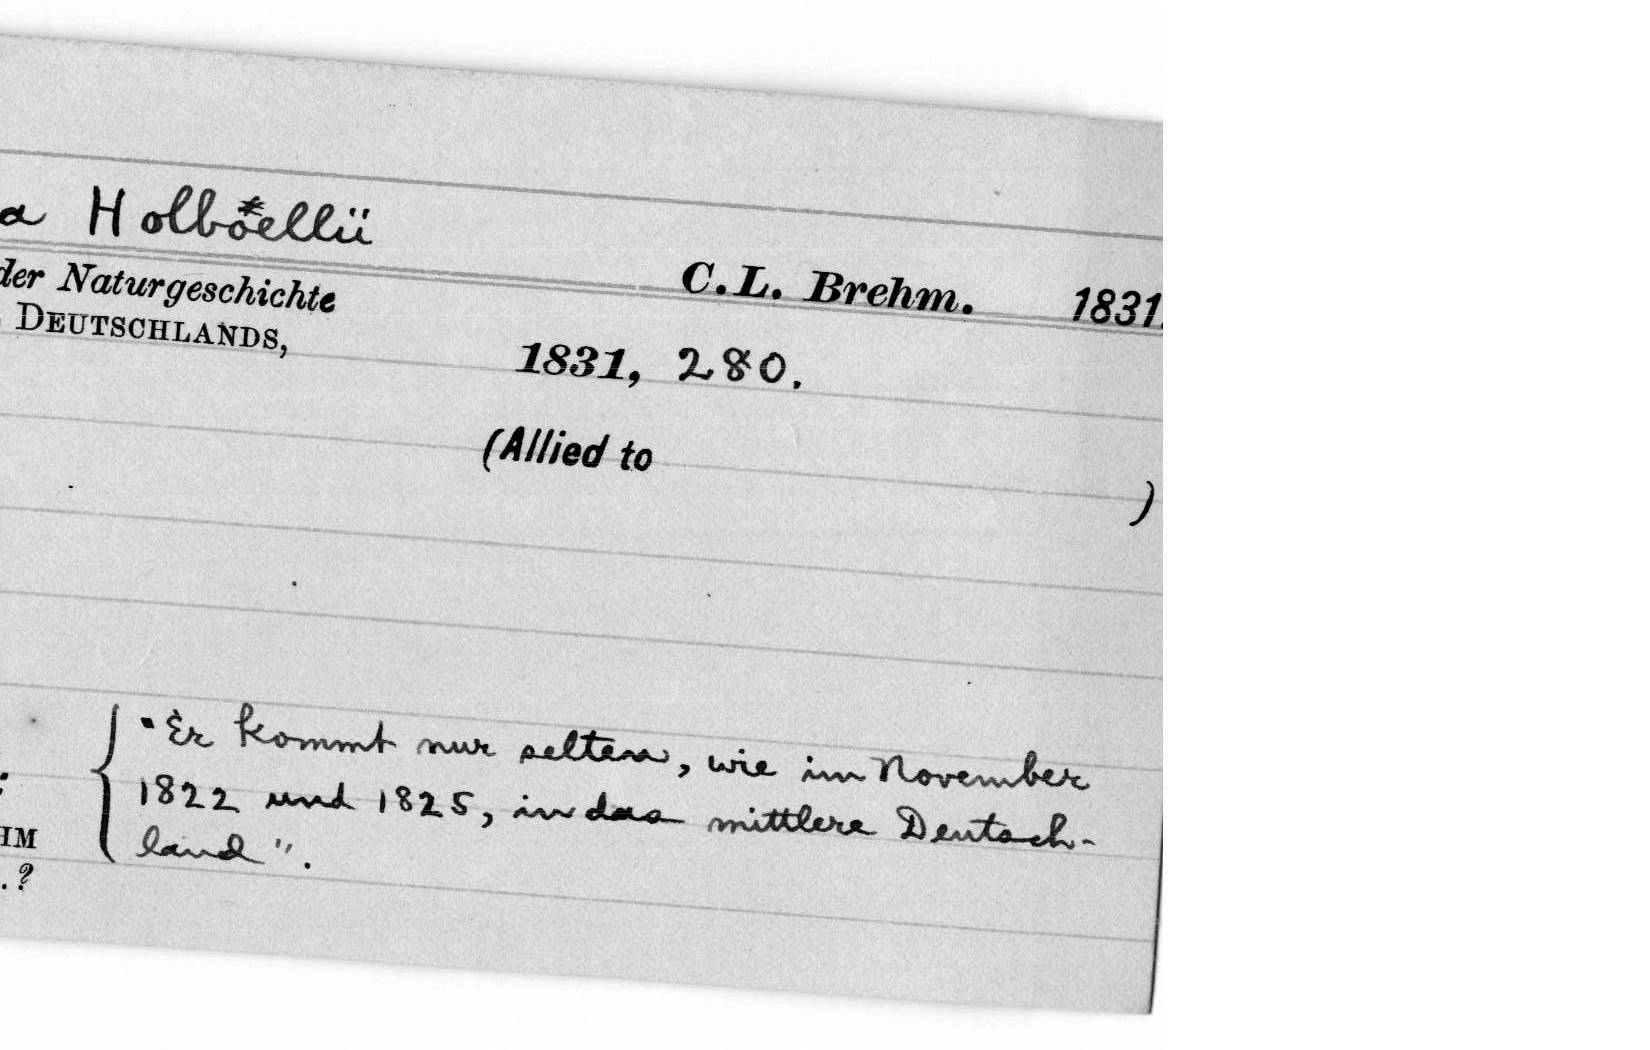 a Holboellii
C.L. Brehm. 1831.
der Naturgeschichte
DEUTSCHLANDS,
1831, 280.
(Allied to )
"Er kommt nur selten, wie im November
1822 und 1825, in das mittlere Deutsch-
land".
HM
.?